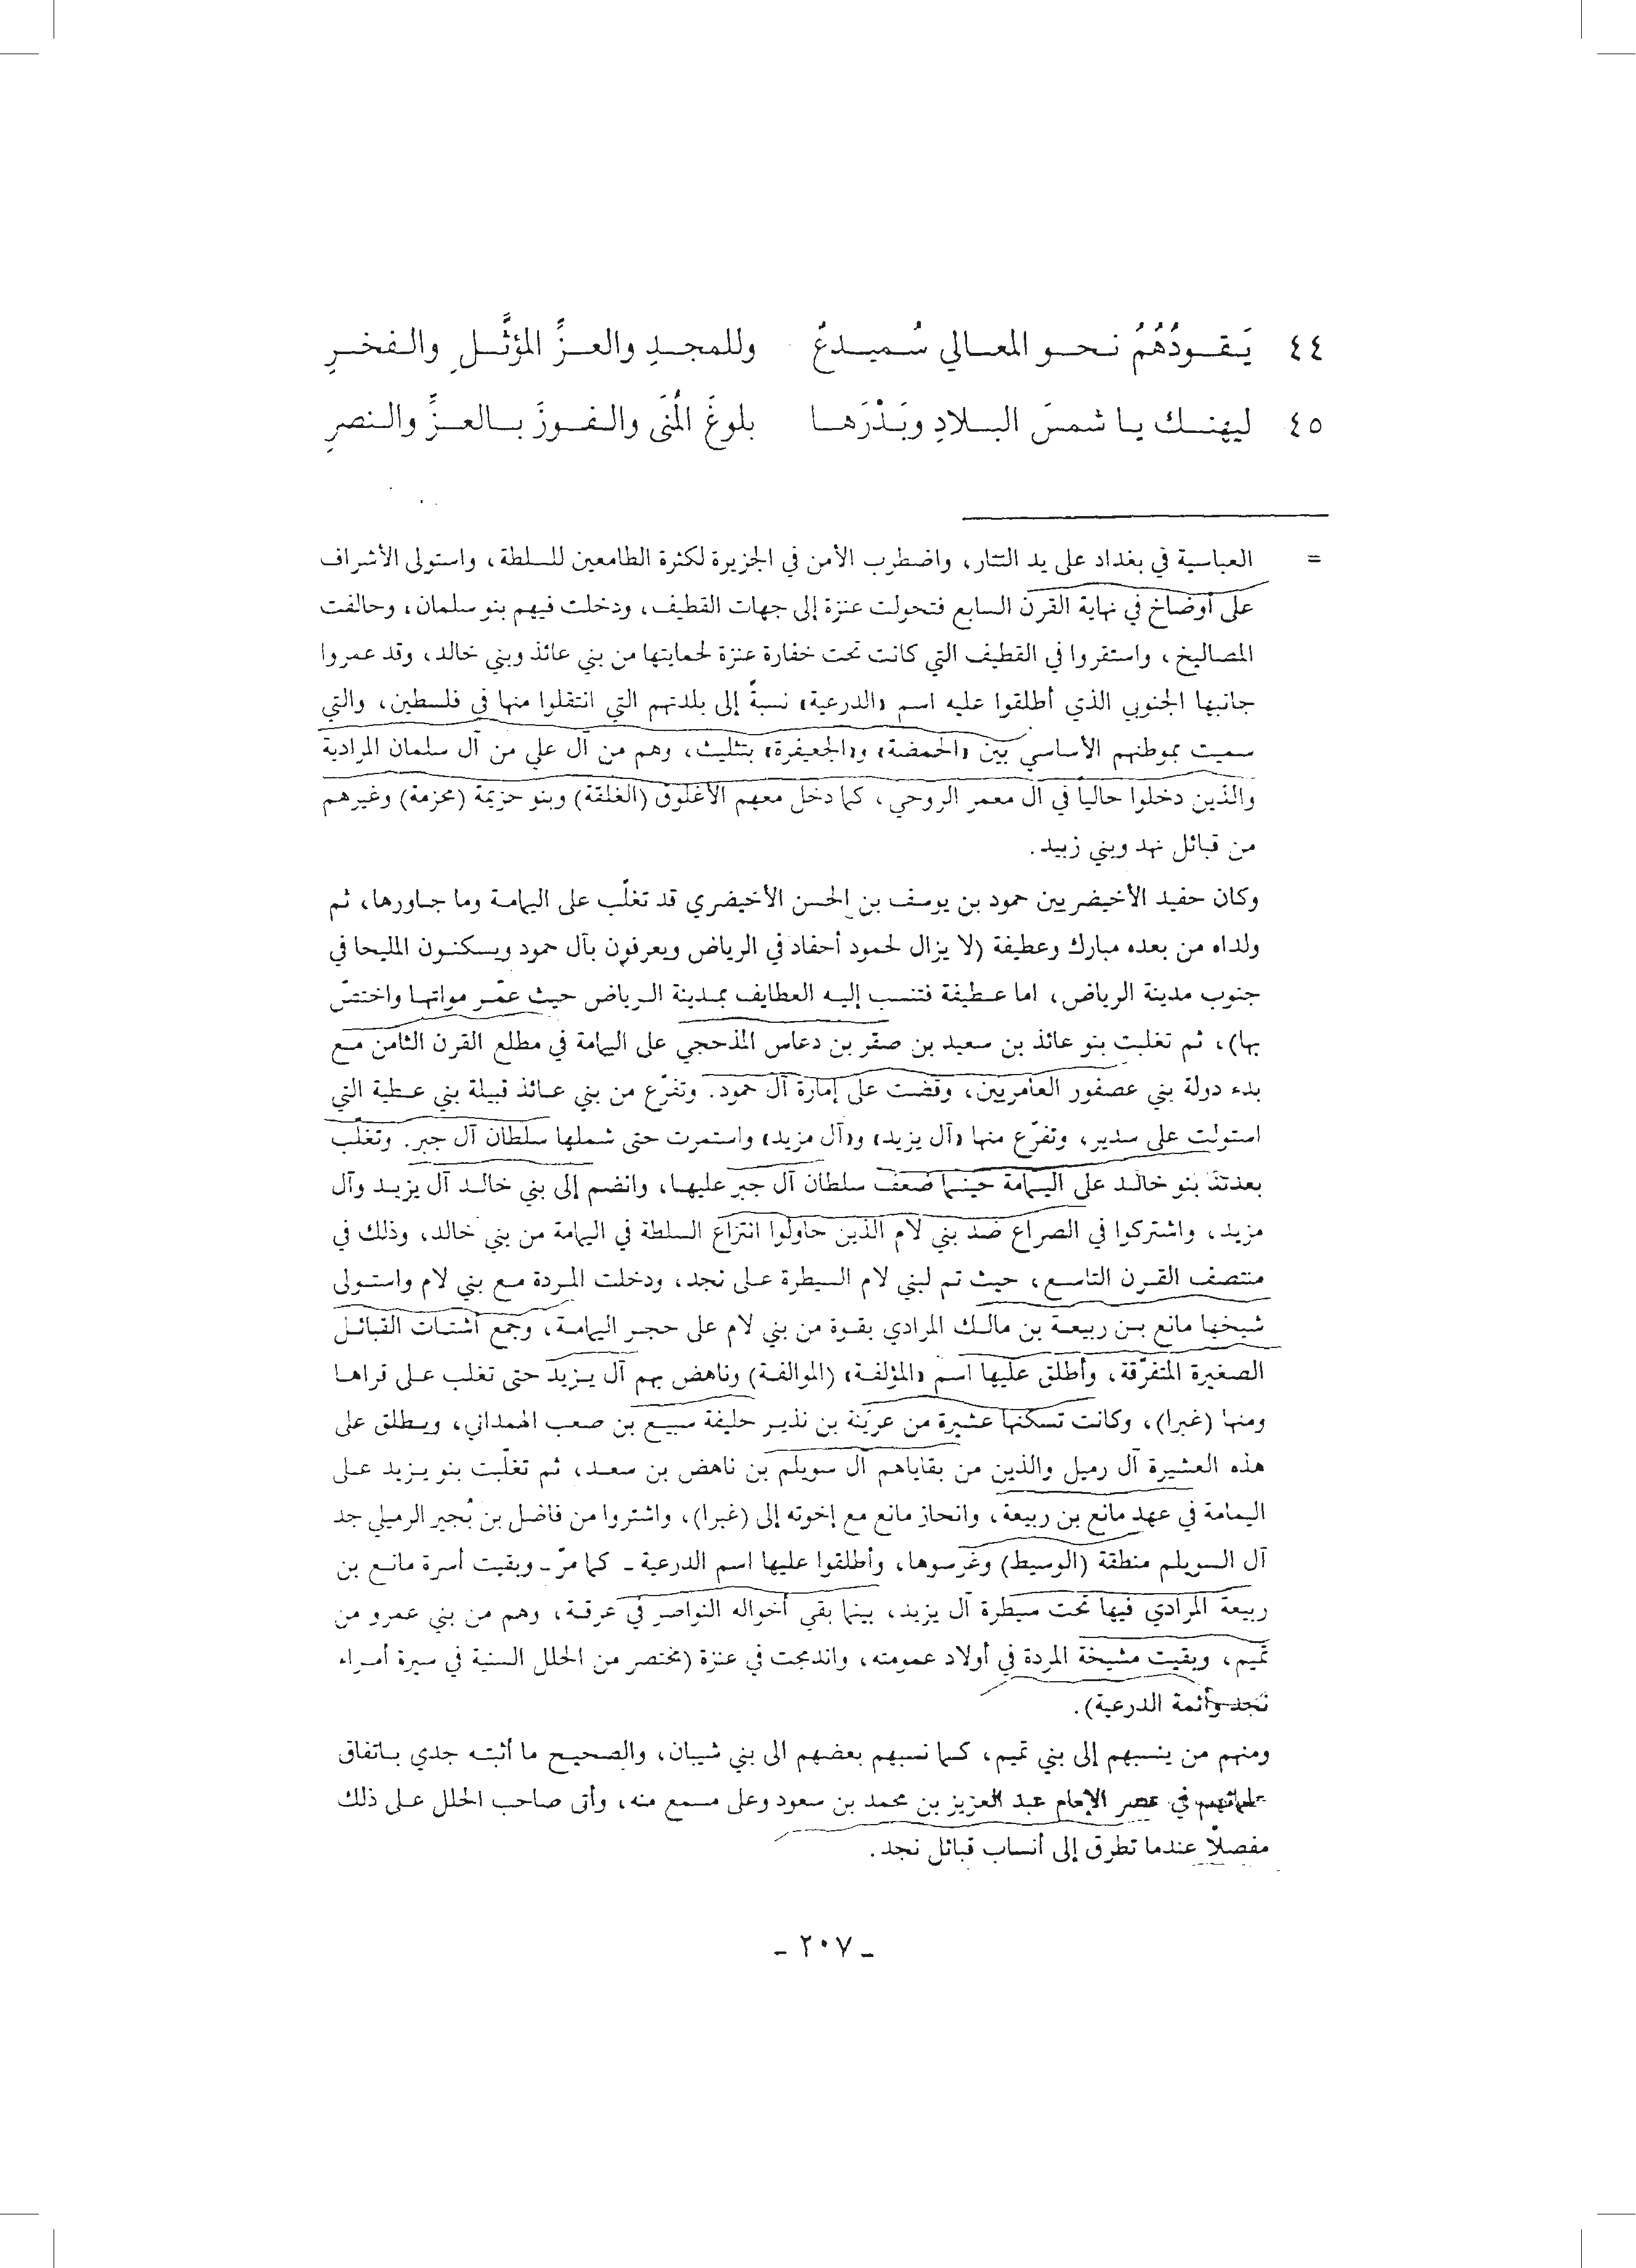 ٤٤ يَـقـــودُهُمُ نـحـــو المعـــالي سُـميــدعٌ وللمجــدِ والعــزِّ المؤثَّــلِ والـفخــرِ
٤٥ ليهنــك يــا شمسَ البــلادِ وبَــدْرَهــا بلوغَ المُنَى والـفــوزَ بــالعــزِّ والنصرِ
= العباسية في بغداد على يد التتار، واضطرب الأمن في الجزيرة لكثرة الطامعين للسلطة، واستولى الأشراف
على أوضاخ في نهاية القرن السابع فتحولت عنزة إلى جهات القطيف، ودخلت فيهم بنو سلمان، وحالفت
المصاليخ، واستقروا في القطيف التي كانت تحت خفارة عنزة لحمايتها من بني عائذ وبني خالد، وقد عمروا
جانبها الجنوبي الذي أطلقوا عليه اسم «الدرعية» نسبةً إلى بلدتهم التي انتقلوا منها في فلسطين، والتي
سميت بموطنهم الأساسي بين «الحمضة» و«الجعيفرة» بتثليث، وهم من آل علي من آل سلمان المرادية
والذين دخلوا حالياً في آل معمر الروحي، كما دخل معهم الأغلوق (الغلقة) وبنو حزيمة (محزمة) وغيرهم
من قبائل نهد وبني زبيد.
وكان حفيد الأخيضريين حمود بن يوسف بن الحسن الأخيضري قد تغلّب على اليمامة وما جاورها، ثم
ولداه من بعده مبارك وعطيفة (لا يزال لحمود أحفاد في الرياض ويعرفون بآل حمود ويسكنون المليحا في
جنوب مدينة الرياض، اما عطيفة فتنسب إليه العطايف بمدينة الرياض حيث عمّر مواتها واختصّ
بها)، ثم تغلبت بنو عائذ بن سعيد بن صقر بن دعاس المذحجي على اليمامة في مطلع القرن الثامن مع
بدء دولة بني عصفور العامريين، وقضت على إمارة آل حمود. وتفرّع من بني عائذ قبيلة بني عطية التي
استولت على سدير، وتفرّع منها «آل يزيد» و«آل مزيد» واستمرت حتى شملها سلطان آل جبر. وتغلّب
بعدئذ بنو خالد على اليمامة حينما ضعف سلطان آل جبر عليها، وانضم إلى بني خالد آل يزيد وآل
مزيد، واشتركوا في الصراع ضد بني لام الذين حاولوا انتزاع السلطة في اليمامة من بني خالد، وذلك في
منتصف القرن التاسع، حيث تم لبني لام السيطرة على نجد، ودخلت المردة مع بني لام واستولى
شيخها مانع بن ربيعة بن مالك المرادي بقوة من بني لام على حجر اليمامة، وجمع أشتات القبائل
الصغيرة المتفرّقة، وأطلق عليها اسم «المؤلفة» (الموالفة) وناهض بهم آل يزيد حتى تغلب على قراها
ومنها (غبرا)، وكانت تسكنها عشيرة من عرينة بن نذير حليفة سبيع بن صعب الهمداني، ويطلق على
هذه العشيرة آل رميل والذين من بقاياهم آل سويلم بن ناهض بن سعد، ثم تغلّبت بنو يزيد على
اليمامة في عهد مانع بن ربيعة، وانحاز مانع مع إخوته إلى (غبرا)، واشتروا من فاضل بن بُجير الرميلي جد
آل السويلم منطقة (الوسيط) وغرسوها، وأطلقوا عليها اسم الدرعية ـ كما مرّ ـ وبقيت أسرة مانع بن
ربيعة المرادي فيها تحت سيطرة آل يزيد، بينما بقي أخواله النواصر في عرقة، وهم من بني عمرو من
تميم، وبقيت مشيخة المردة في أولاد عمومته، واندمجت في عنزة (مختصر من الحلل السنية في سيرة أمراء
نجد وأئمة الدرعية).
ومنهم من ينسبهم إلى بني تميم، كما نسبهم بعضهم الى بني شيبان، والصحيح ما أثبته جدي باتفاق
علمائهم في عصر الإمام عبد العزيز بن محمد بن سعود وعلى مسمع منه، وأتى صاحب الحلل على ذلك
مفصلاً عندما تطرق إلى أنساب قبائل نجد.
ـ ٢٠٧ ـ